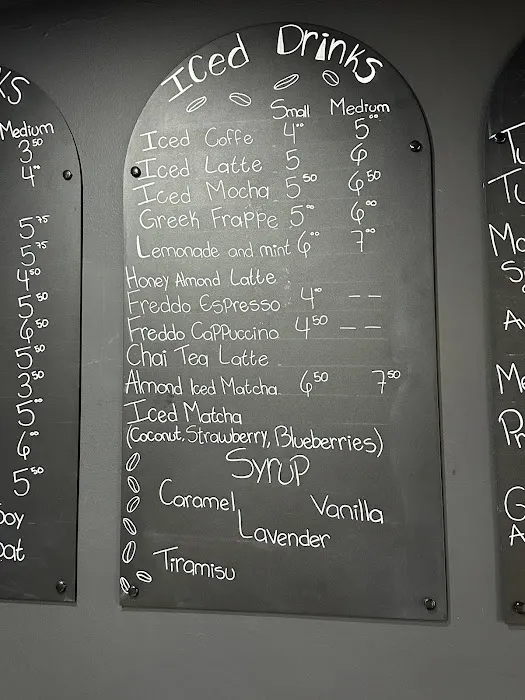 KS
Medium
3.50
4.00
5.75
5.75
4.50
5.50
6.50
5.50
3.50
5.00
6.00
5.50
oy
oat
Iced Drinks
Small Medium
Iced Coffe 4.00 5.00
Iced Latte 5 6
Iced Mocha 5.50 6.50
Greek Frappe 5.00 6.00
Lemonade and mint 6.00 7.00
Honey Almond Latte
Freddo Espresso 4.00 --
Freddo Cappuccino 4.50 --
Chai Tea Latte
Almond Iced Matcha 6.50 7.50
Iced Matcha
(Coconut, Strawberry, Blueberries)
Syrup
Caramel Vanilla
Lavender
Tiramisu